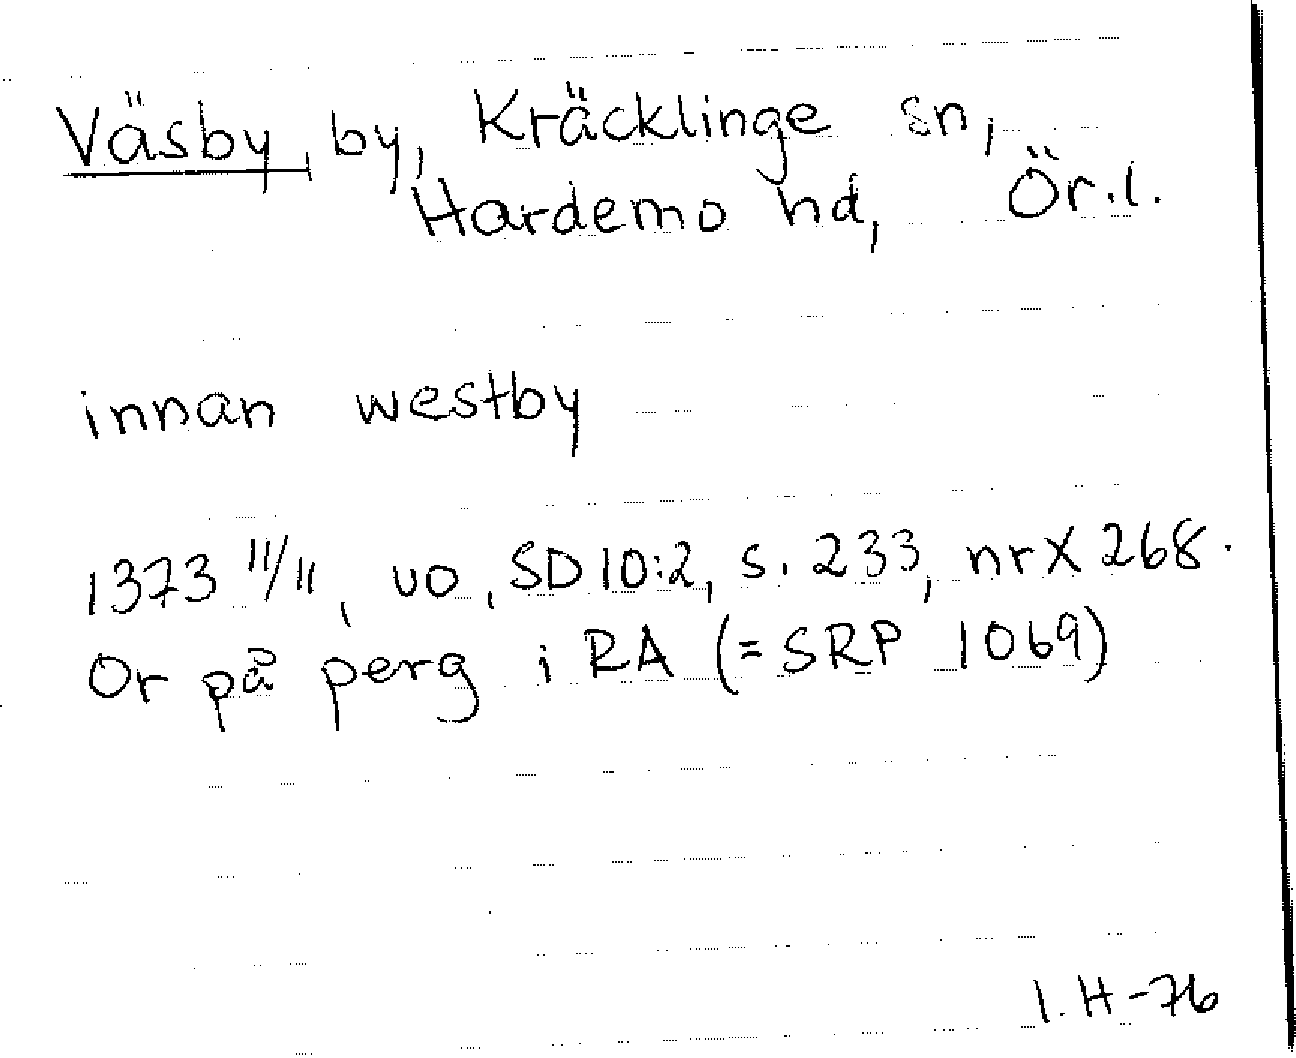 Väsby, by, Kräcklinge sn,
Hardemo hd, Ör.l.
innan westby
1373 11/11, uo, SD 10:2, s. 233, nr X 268.
Or på perg i RA (= SRP 1069)
I. H-76